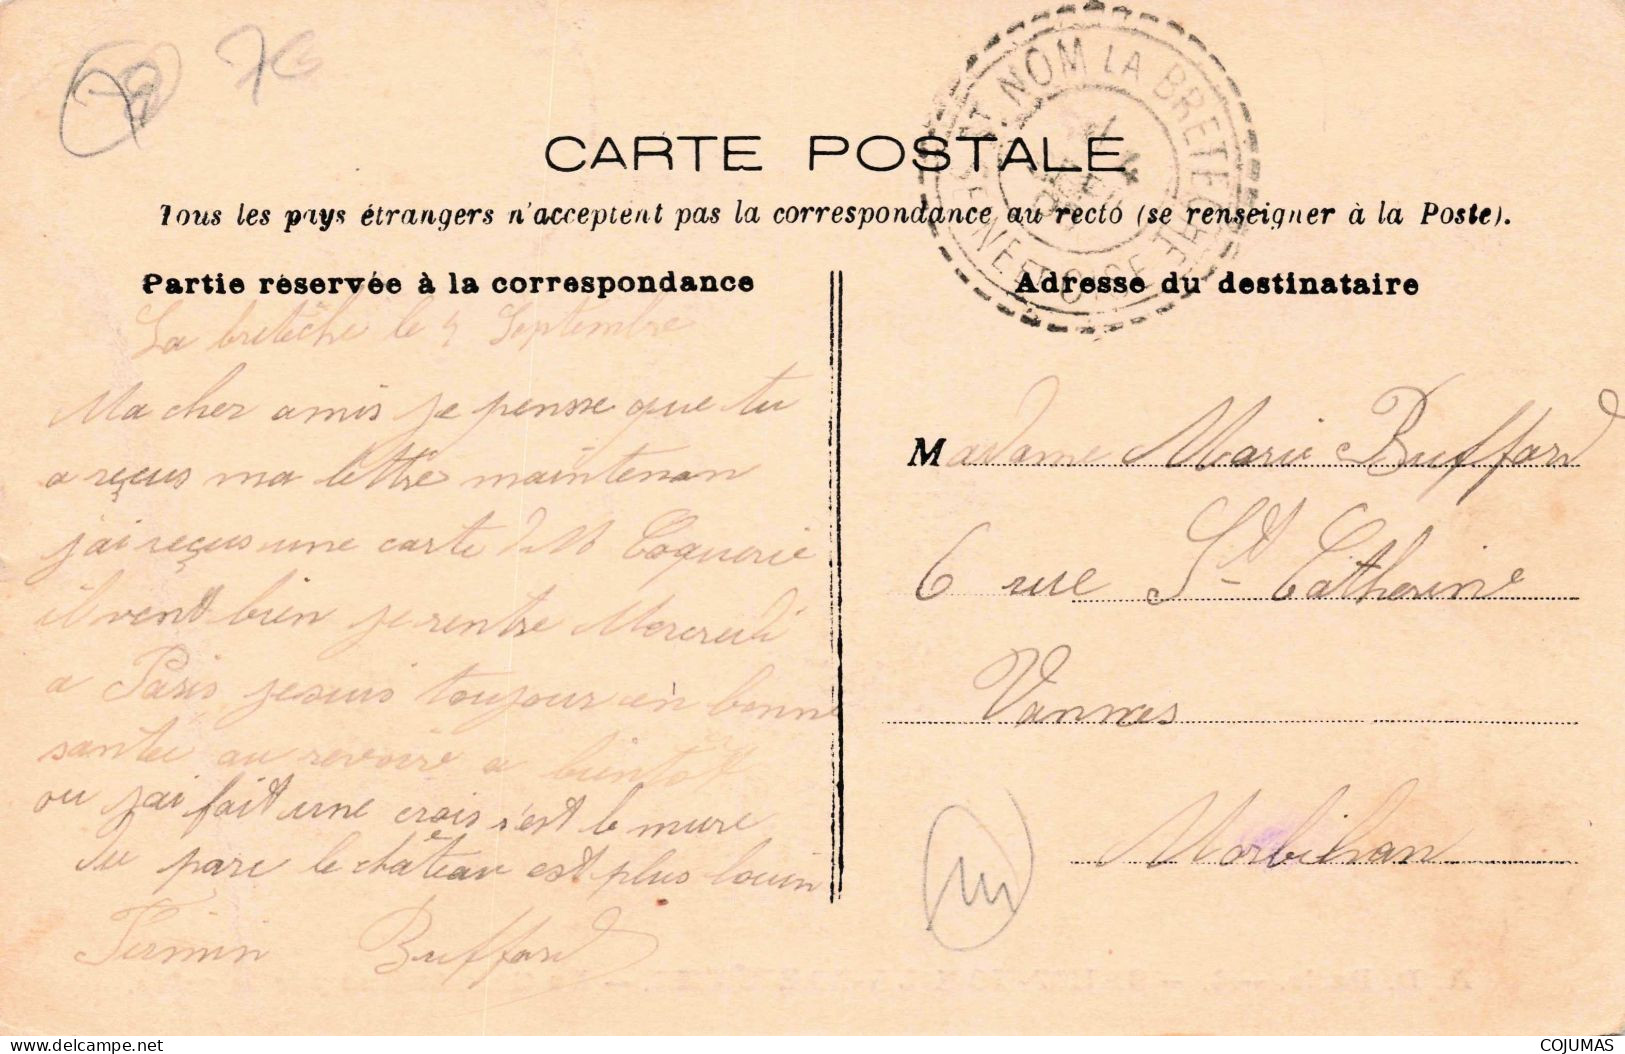 78
ST NOM LA BRETECHE
SEINE ET OISE
CARTE POSTALE
Tous les pays étrangers n'acceptent pas la correspondance au recto (se renseigner à la Poste).
Partie réservée à la correspondance
La bretèche le 4 Septembre
Ma cher amis je pensse que tu
a reçus ma lettre maintenan
j'ai reçus une carte d M Coquerie
il vent bien je rentre Mercredi
a Paris je suis toujour en bonne
santée au revoire a bientot
ou j'ai fait une crois s'est le mure
du parc le château est plus louin
Firmin Buffard
Adresse du destinataire
Madame Marie Buffard
6 rue St Catherine
Vannes
Morbihan
delcampe.net
COJUMAS